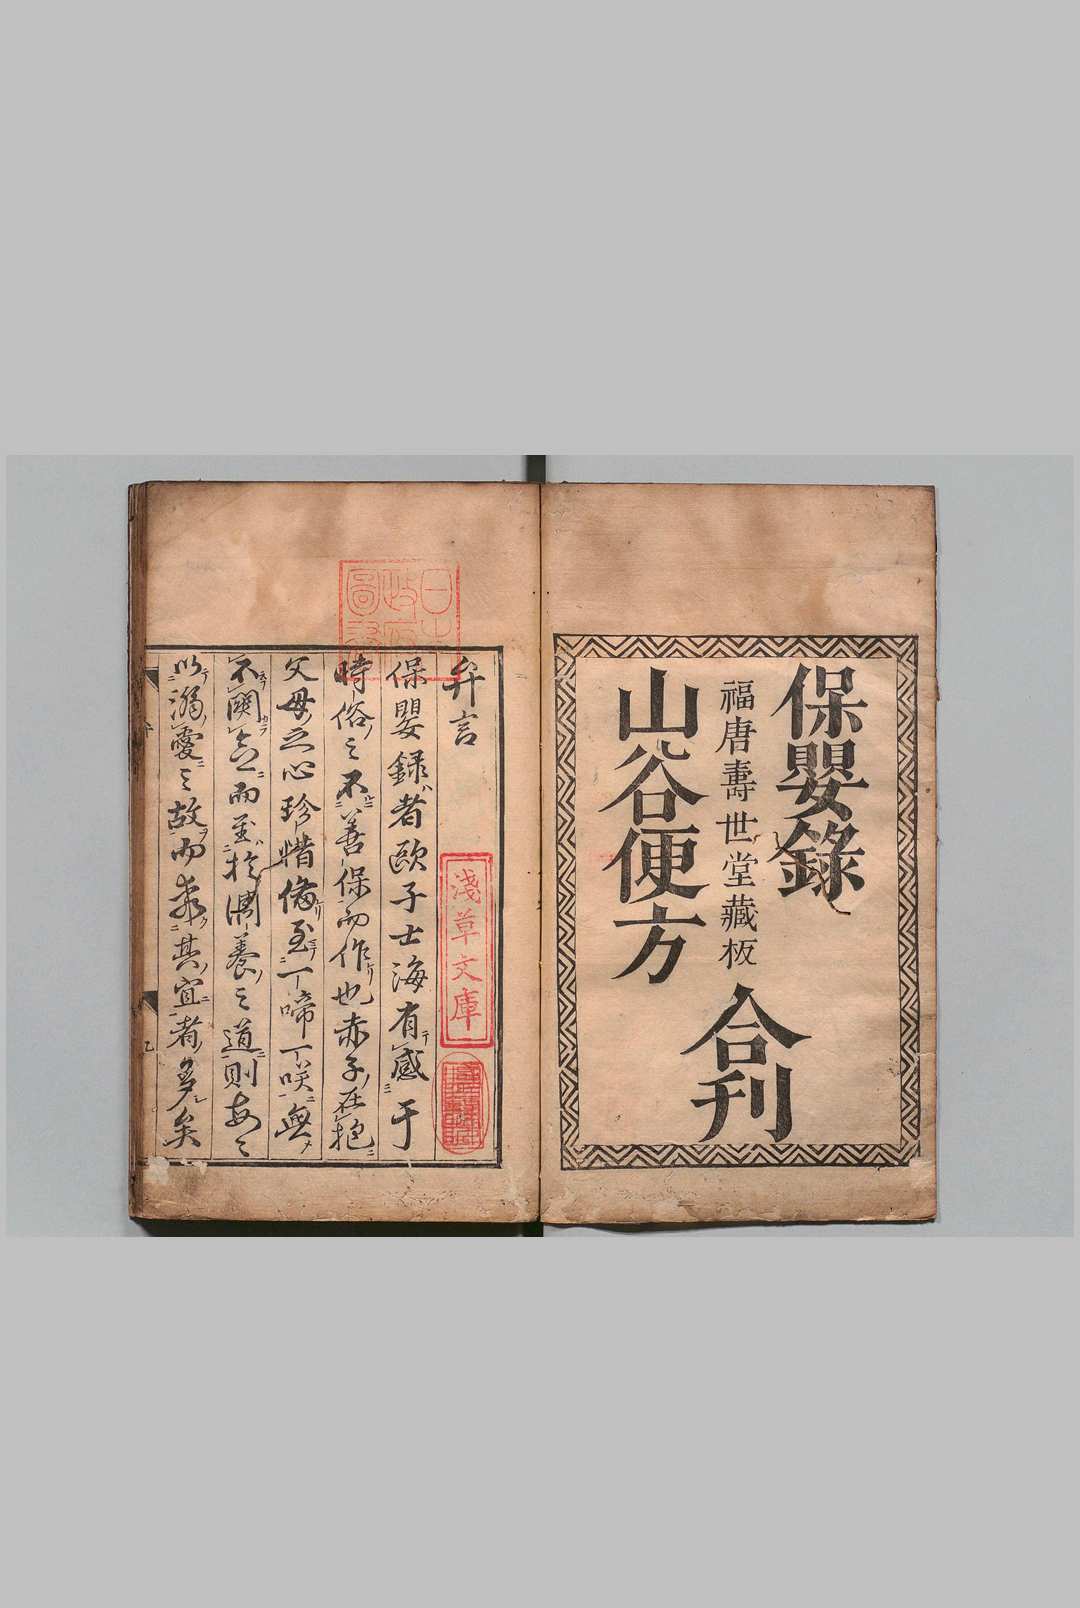 保嬰錄
福唐壽世堂藏板
山谷便方
合刊
弁言
保嬰録者歐子士海有感于
時俗之不善保而作也赤子在抱
父母之心珍惜備至一啼一咲無
不関念而至於調養之道則每々
以溺愛之故而乖其宜者多矣
日本
政府
圖書
淺草文庫